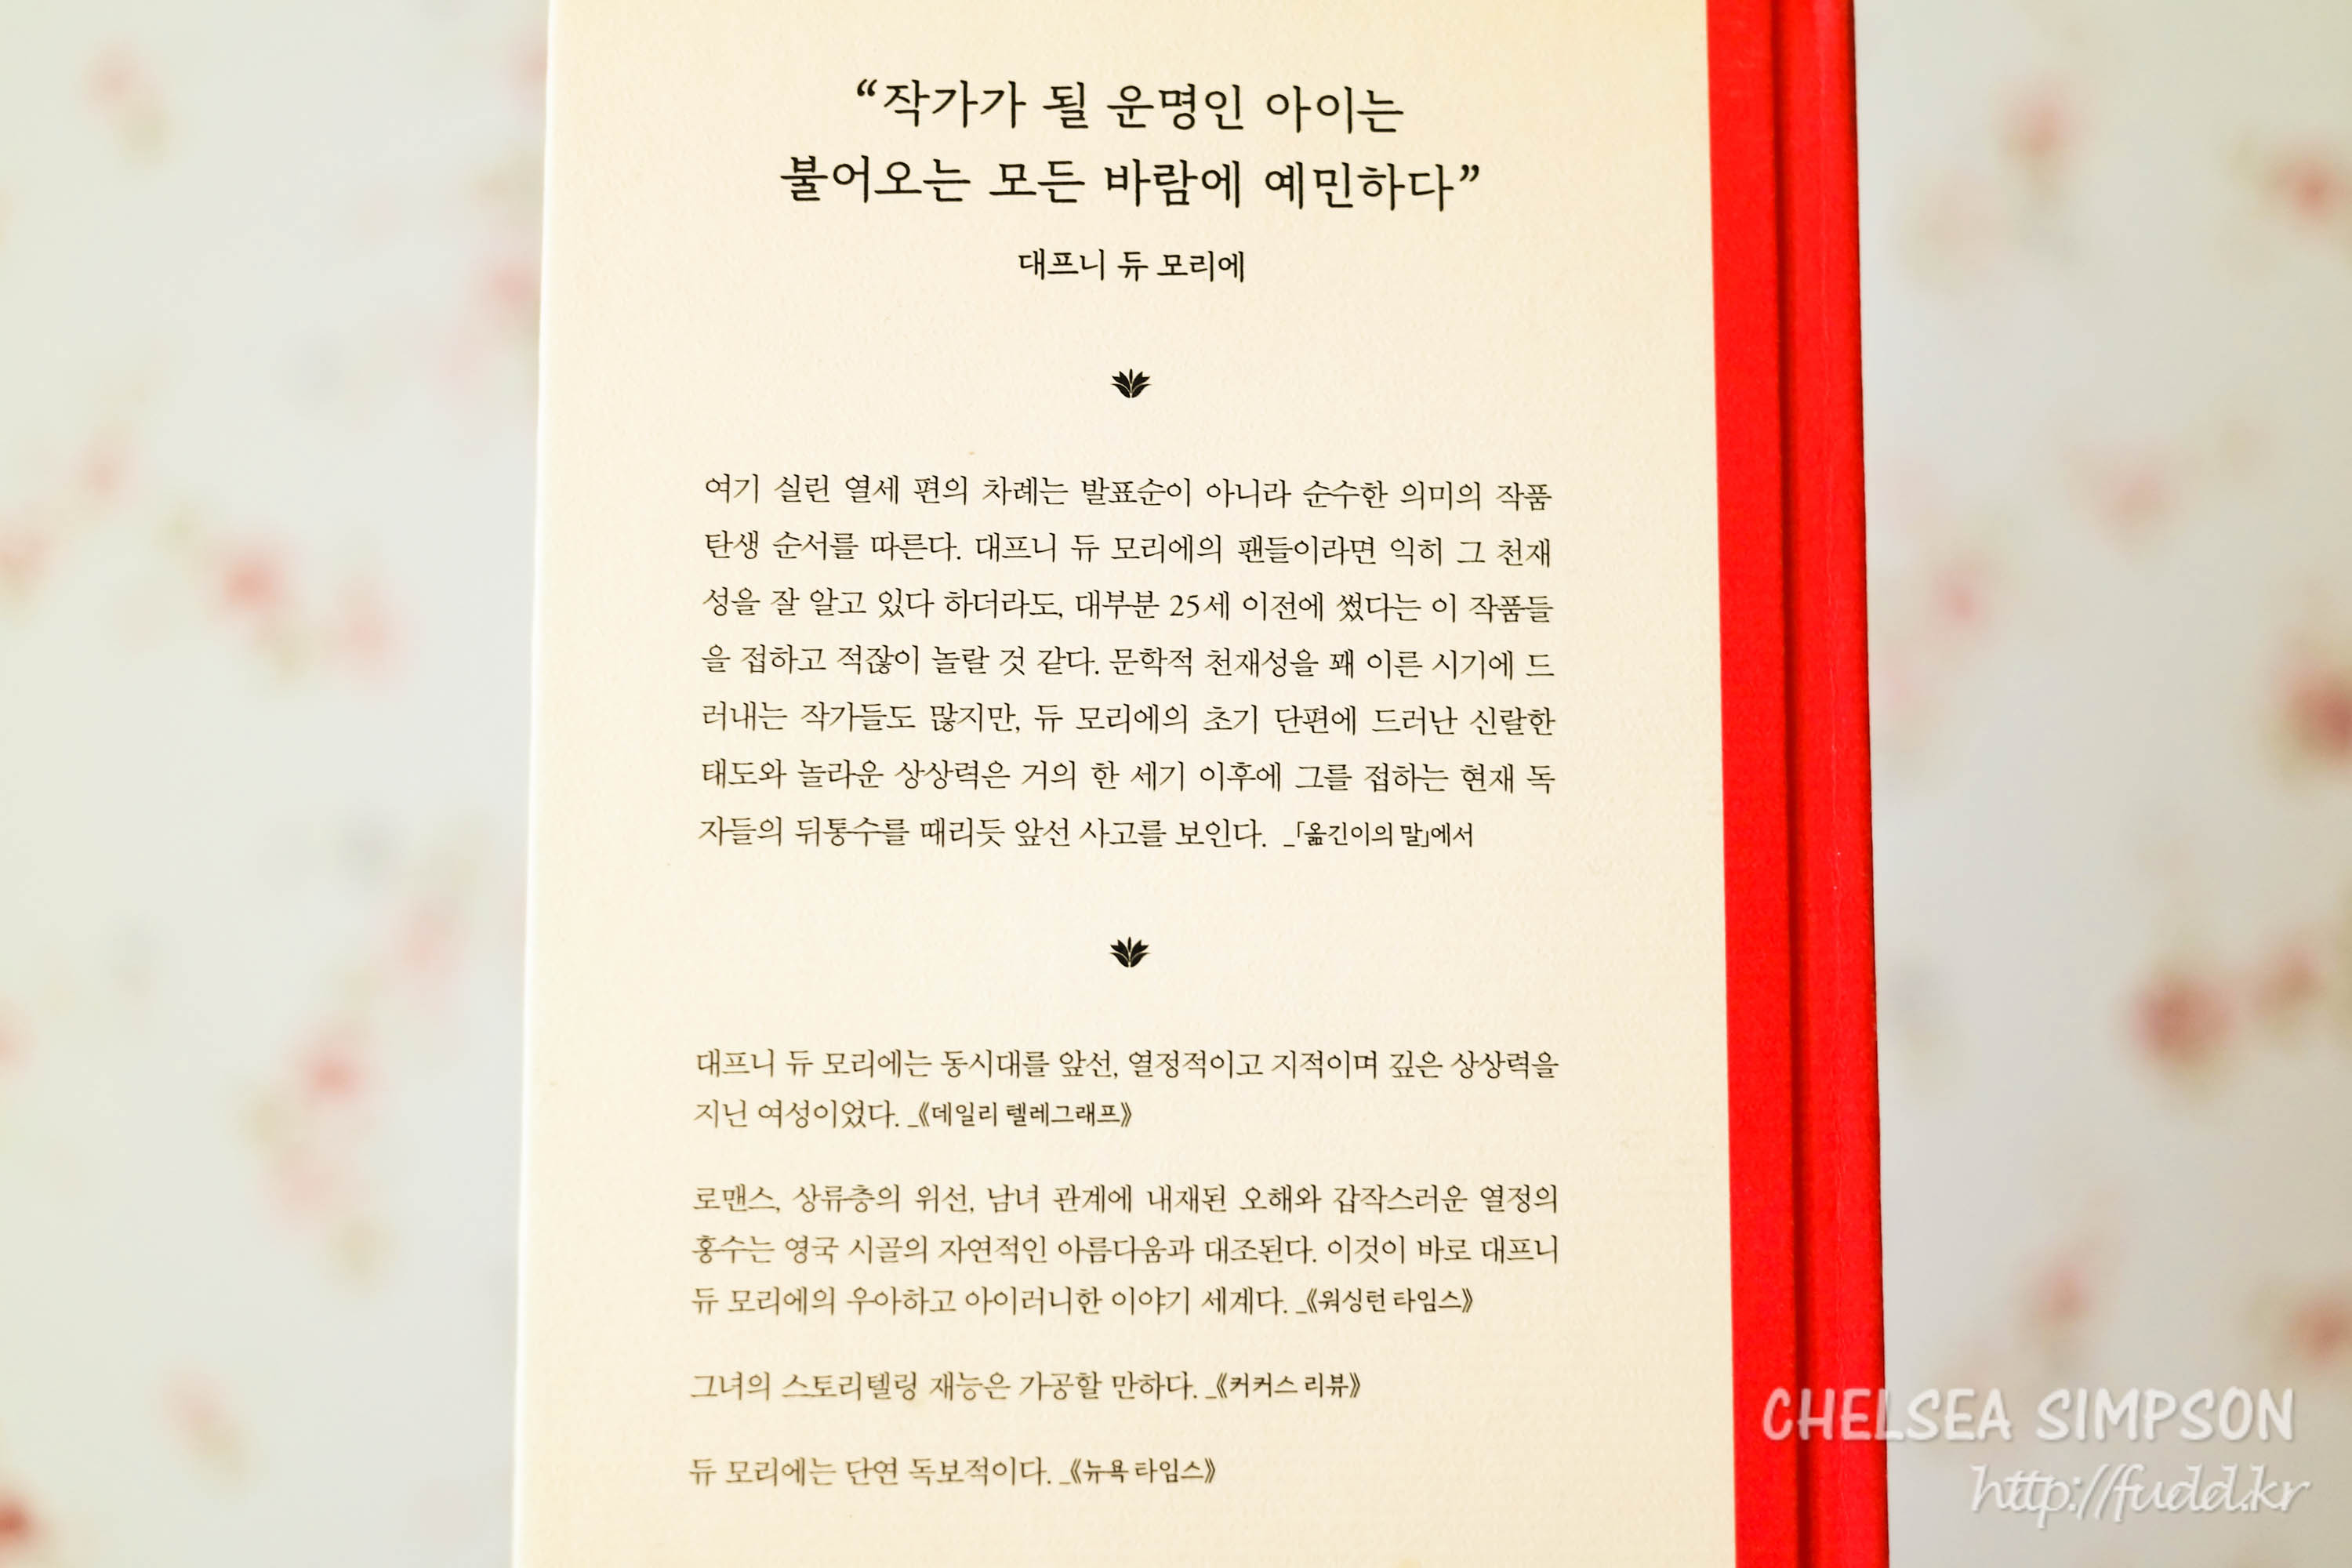 “작가가 될 운명인 아이는
불어오는 모든 바람에 예민하다”
대프니 듀 모리에
여기 실린 열세 편의 차례는 발표순이 아니라 순수한 의미의 작품
탄생 순서를 따른다. 대프니 듀 모리에의 팬들이라면 익히 그 천재
성을 잘 알고 있다 하더라도, 대부분 25세 이전에 썼다는 이 작품들
을 접하고 적잖이 놀랄 것 같다. 문학적 천재성을 꽤 이른 시기에 드
러내는 작가들도 많지만, 듀 모리에의 초기 단편에 드러난 신랄한
태도와 놀라운 상상력은 거의 한 세기 이후에 그를 접하는 현재 독
자들의 뒤통수를 때리듯 앞선 사고를 보인다. _「옮긴이의 말」에서
대프니 듀 모리에는 동시대를 앞선, 열정적이고 지적이며 깊은 상상력을
지닌 여성이었다. _《데일리 텔레그래프》
로맨스, 상류층의 위선, 남녀 관계에 내재된 오해와 갑작스러운 열정의
홍수는 영국 시골의 자연적인 아름다움과 대조된다. 이것이 바로 대프니
듀 모리에의 우아하고 아이러니한 이야기 세계다. _《워싱턴 타임스》
그녀의 스토리텔링 재능은 가공할 만하다. _《커커스 리뷰》
듀 모리에는 단연 독보적이다. _《뉴욕 타임스》
CHELSEA SIMPSON
http://fudd.kr